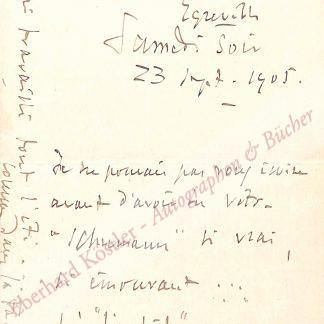 Egreville
Samedi Soir
23 Sept. 1905.
Je ne pouvais pas vous écrire
avant d'avoir lu votre
"Schumann" si vrai,
si émouvant ...
travaillé tout l'été
Eberhard Köstler - Autographen & Bücher